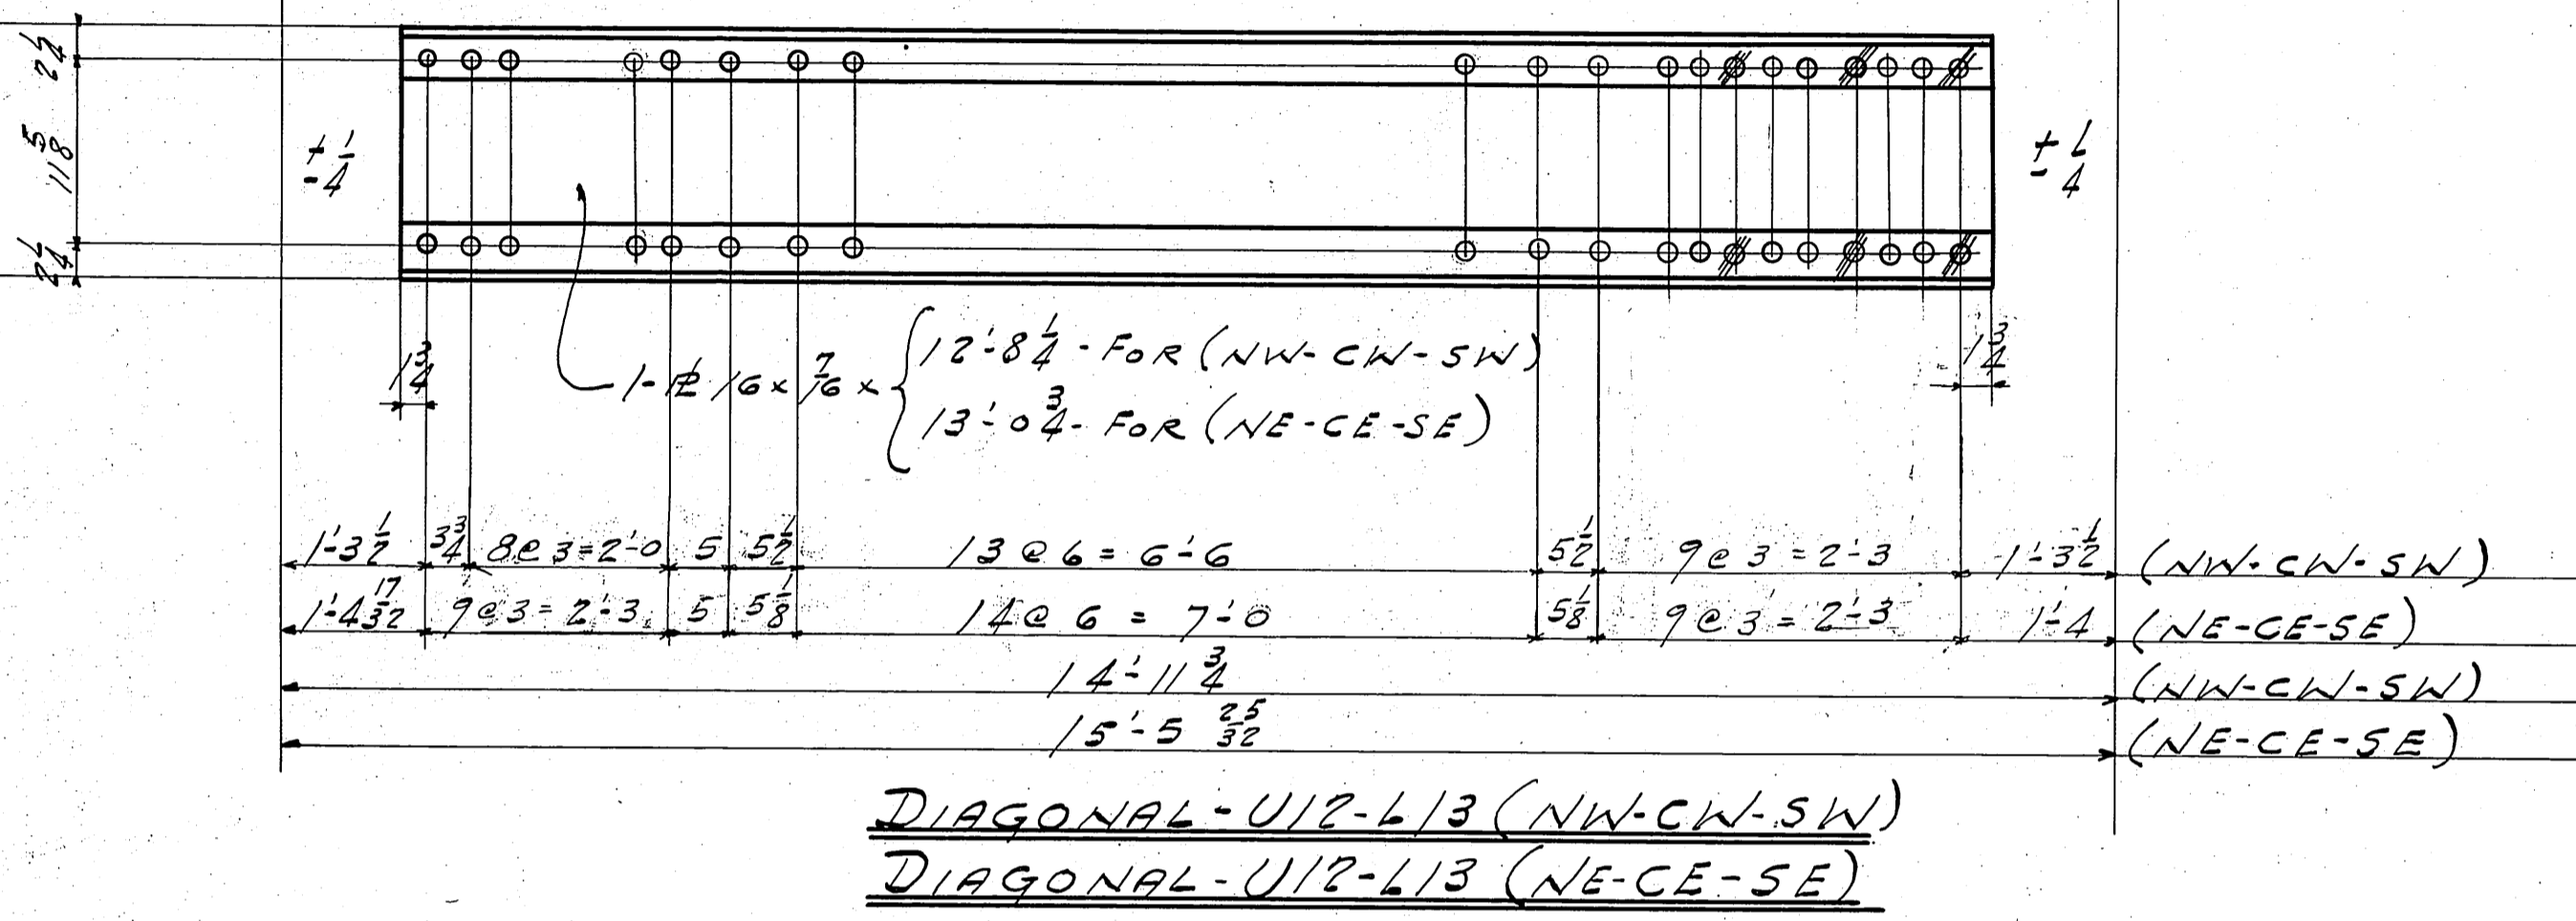 2 1/4
11 5/8
2 1/4
± 1/4
± 1/4
1 3/4
1-PL 16 x 7/16 x
12'-8 1/4 - FOR (NW-CW-SW)
13'-0 3/4 - FOR (NE-CE-SE)
1 3/4
1'-3 1/2 3 3/4 8@3=2'-0 5 5 1/2 13@6=6'-6 5 1/2 9@3=2'-3 1'-3 1/2 (NW-CW-SW)
1'-4 17/32 9@3=2'-3 5 5 1/8 14@6=7'-0 5 1/8 9@3=2'-3 1'-4 (NE-CE-SE)
14'-11 3/4 (NW-CW-SW)
15'-5 25/32 (NE-CE-SE)
DIAGONAL-U12-L13 (NW-CW-SW)
DIAGONAL-U12-L13 (NE-CE-SE)